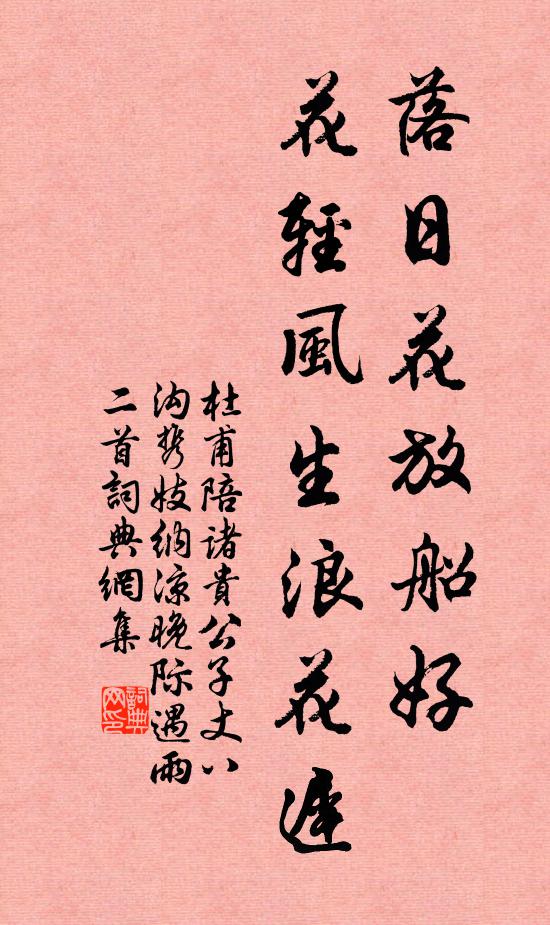 落日花放船好
花輕風生浪花遲
杜甫陪諸貴公子丈八
沟携妓納凉晚际遇雨
二首詞典網集
詞典
网印